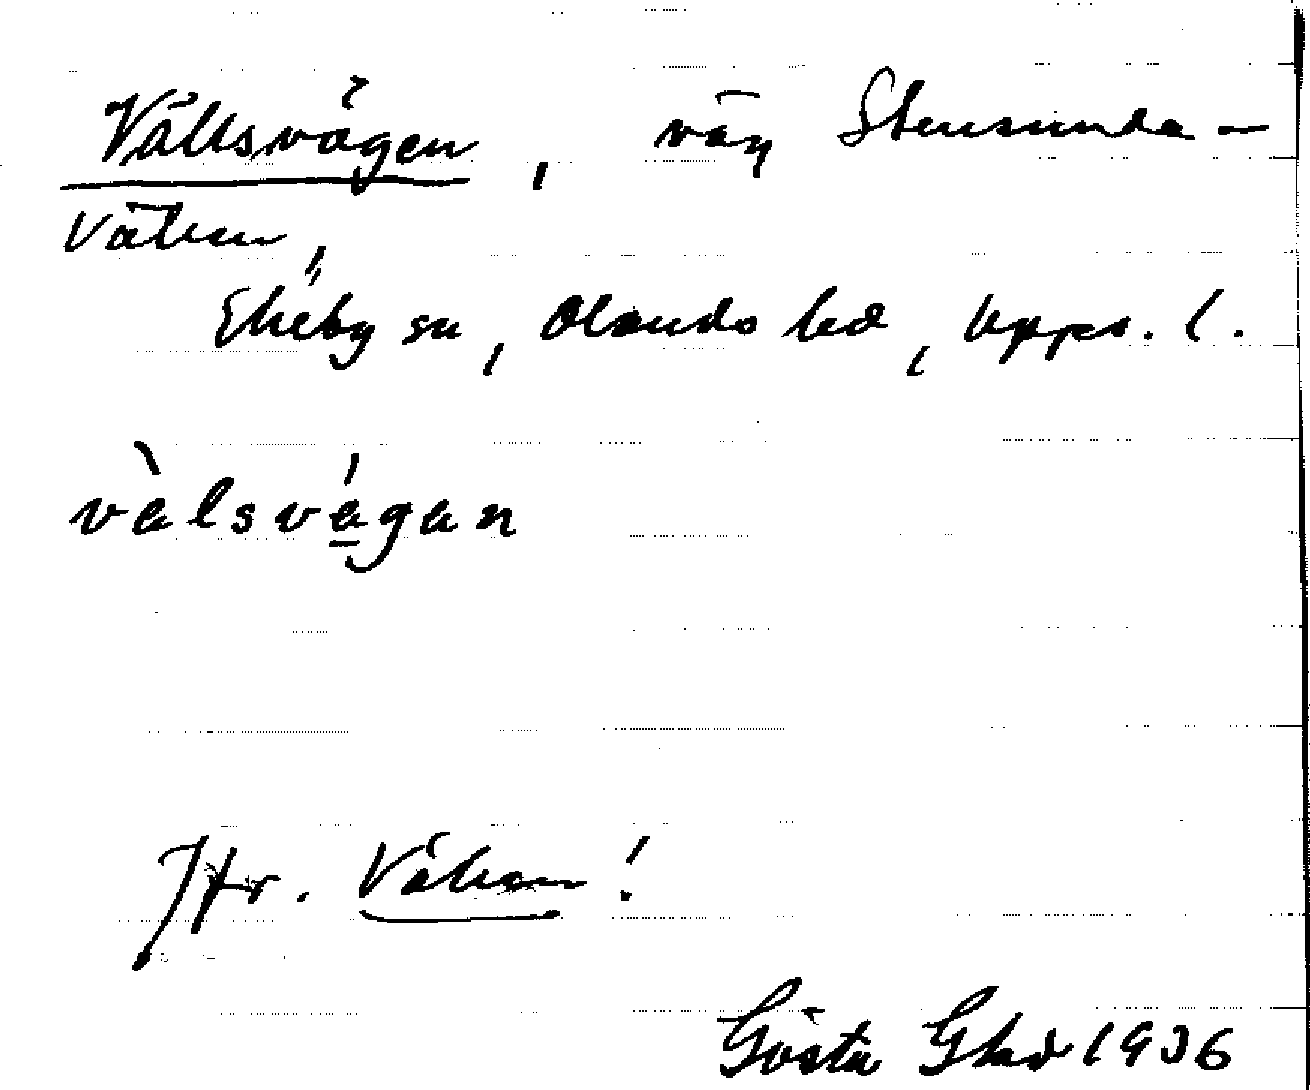 Vällsvägen, väg Stensunda –
Vällen,
Ekeby sn, Olands hd, Upps. l.
vèlsvégan
Jfr. Vällen!
Gösta Glad 1936